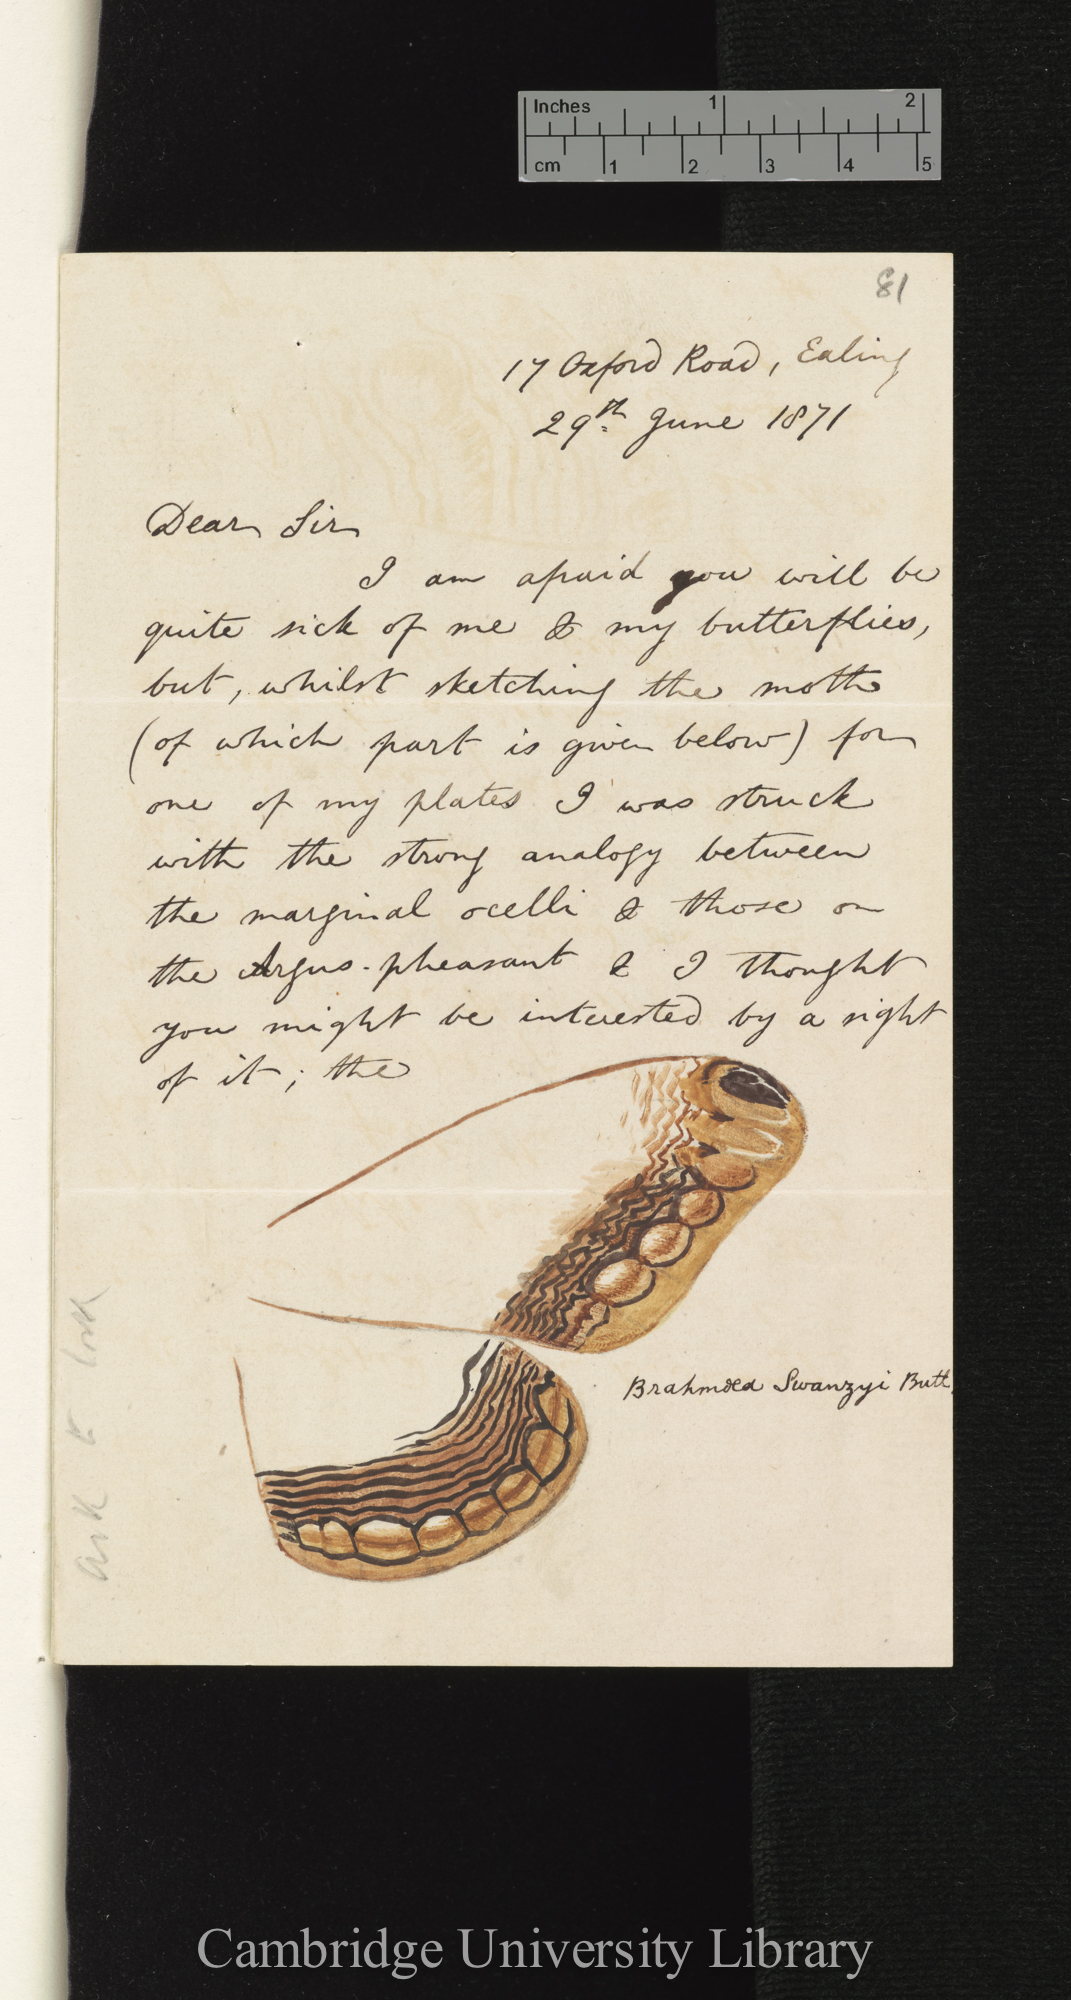 Inches 1 2
cm 1 2 3 4 5
81
17 Oxford Road, Ealing
29th June 1871
Dear Sir
I am afraid you will be
quite sick of me & my butterflies,
but, whilst sketching the moth
(of which part is given below) for
one of my plates I was struck
with the strong analogy between
the marginal ocelli & those on
the Argus-pheasant & I thought
you might be interested by a sight
of it; the
Brahmœa Swanzyi Butl.
ask to look
Cambridge University Library